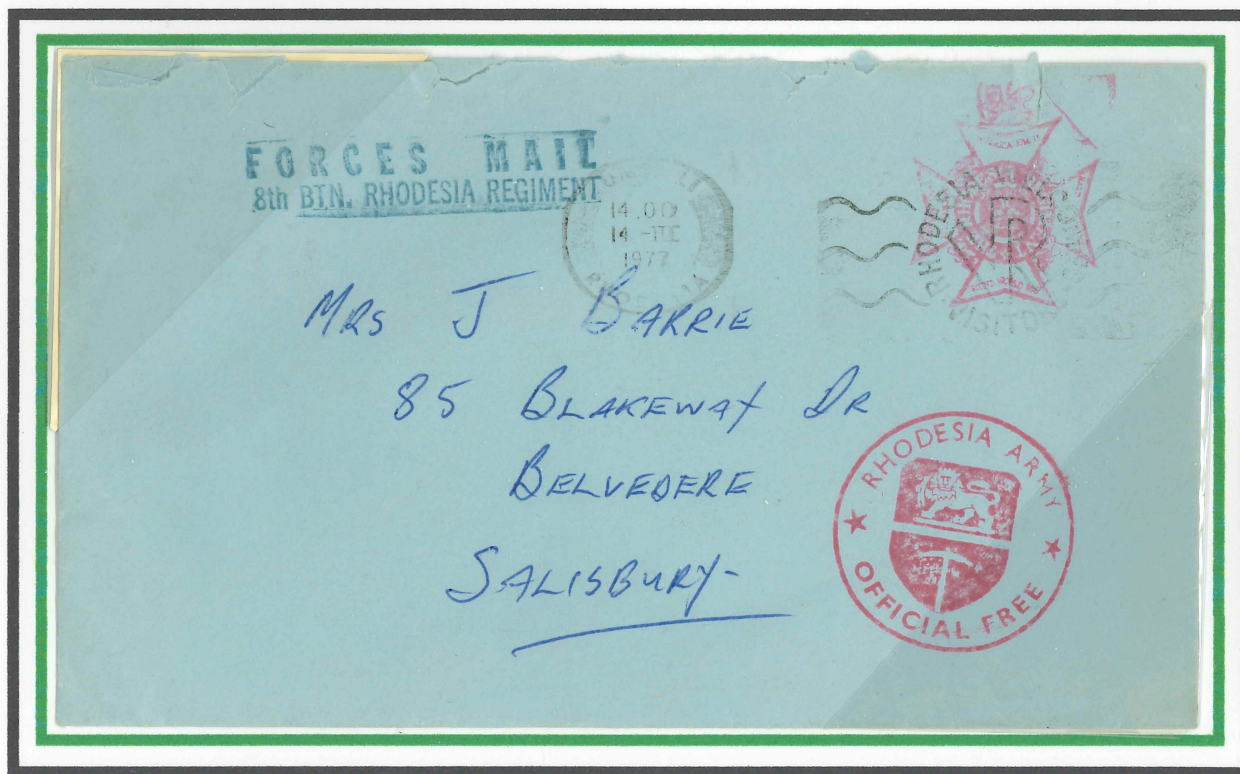 FORCES MAIL
8th BTN. RHODESIA REGIMENT
14.00
14 -
1977
RHODESIA
VISITOR
MRS J BARRIE
85 BLAKEWAY DR
BELVEDERE
SALISBURY-
RHODESIA ARMY
OFFICIAL FREE